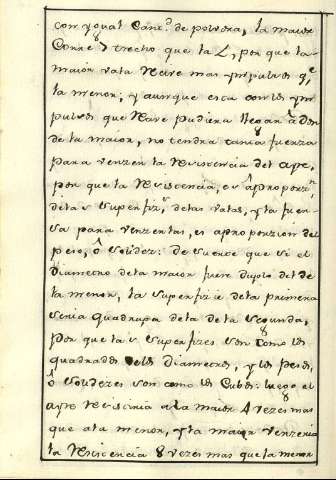 con ygual Cant.d de polvora, la maior
Corre trecho que la L, por que la
maior vala lleve mas ympulsos q.e
la menor, y aunque esta con los ym
pulsos que lleve pudiera llegar a don
de la maior, no tendra tanta fuerza
para venzer la resistencia del ayre,
por que la resistencia, es a proporz.n
de las superfiz.s de las valas, y la fuer
sa para venzerlas, es a proporzion del
peso, ô solidez: de suerte que si el
diametro de la maior fuere duplo del de
la menor, la superfizie de la primera
seria quadrupa de la de la segunda,
por que las superfizes son como los
quadrados de los diametros, y los pesos,
ô solidezes son como los cubos: luego el
ayre resistiria a la maior 4 vezes mas
que a la menor, y la maior venzeria
la resistencia 8 vezes mas que la menor